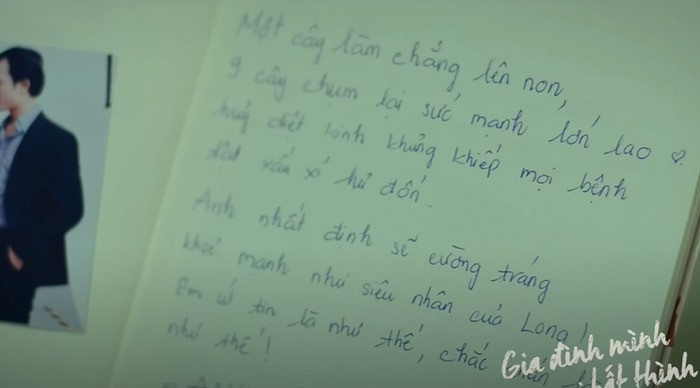 Một cây làm chẳng lên non,
9 cây chụm lại sức mạnh lớn lao
huỷ diệt kinh khủng khiếp mọi bệnh
tật xấu xí hư đốn.
Anh nhất định sẽ cường tráng
khoẻ mạnh như siêu nhân của Long!
Em tin là như thế, chắc
như thế!
Gia đình mình
bất thình